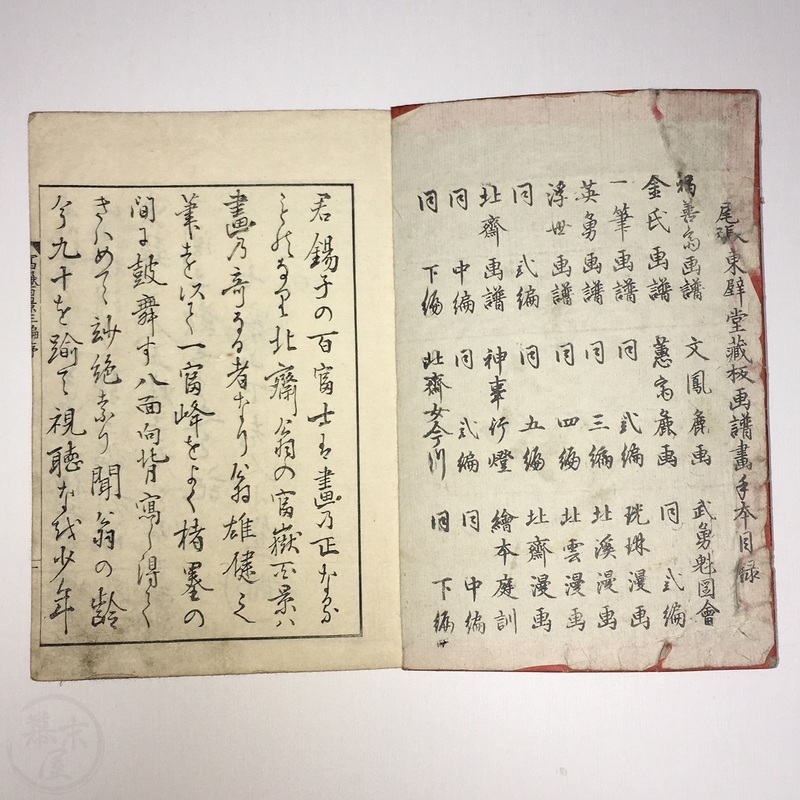 尾張東壁堂藏板画譜畫手本目録
福善斎画譜
金氏画譜
一筆画譜
英勇画譜
浮世画譜
同 弍編
北齋画譜
同 中編
同 下編
文鳳麁画
蕙斎麁画
同 弍編
同 三編
同 四編
同 五編
神事行燈
同 弍編
北齋女今川
武勇魁図會
同 弍編
光琳漫画
北溪漫画
北雲漫画
北齋漫画
繪本庭訓
同 中編
同 下編
君錫子の百富士は畫乃正なる
ものなり北齋翁の富嶽百景ハ
畫乃奇なる者なり翁雄健之
筆を以て一富峰をよく楮墨の
間に鼓舞す八面向背寫し得て
きハめて玅絶なり聞翁の齢
今九十を踰て視聴なほ少年
富嶽百景三編序
幕末屋